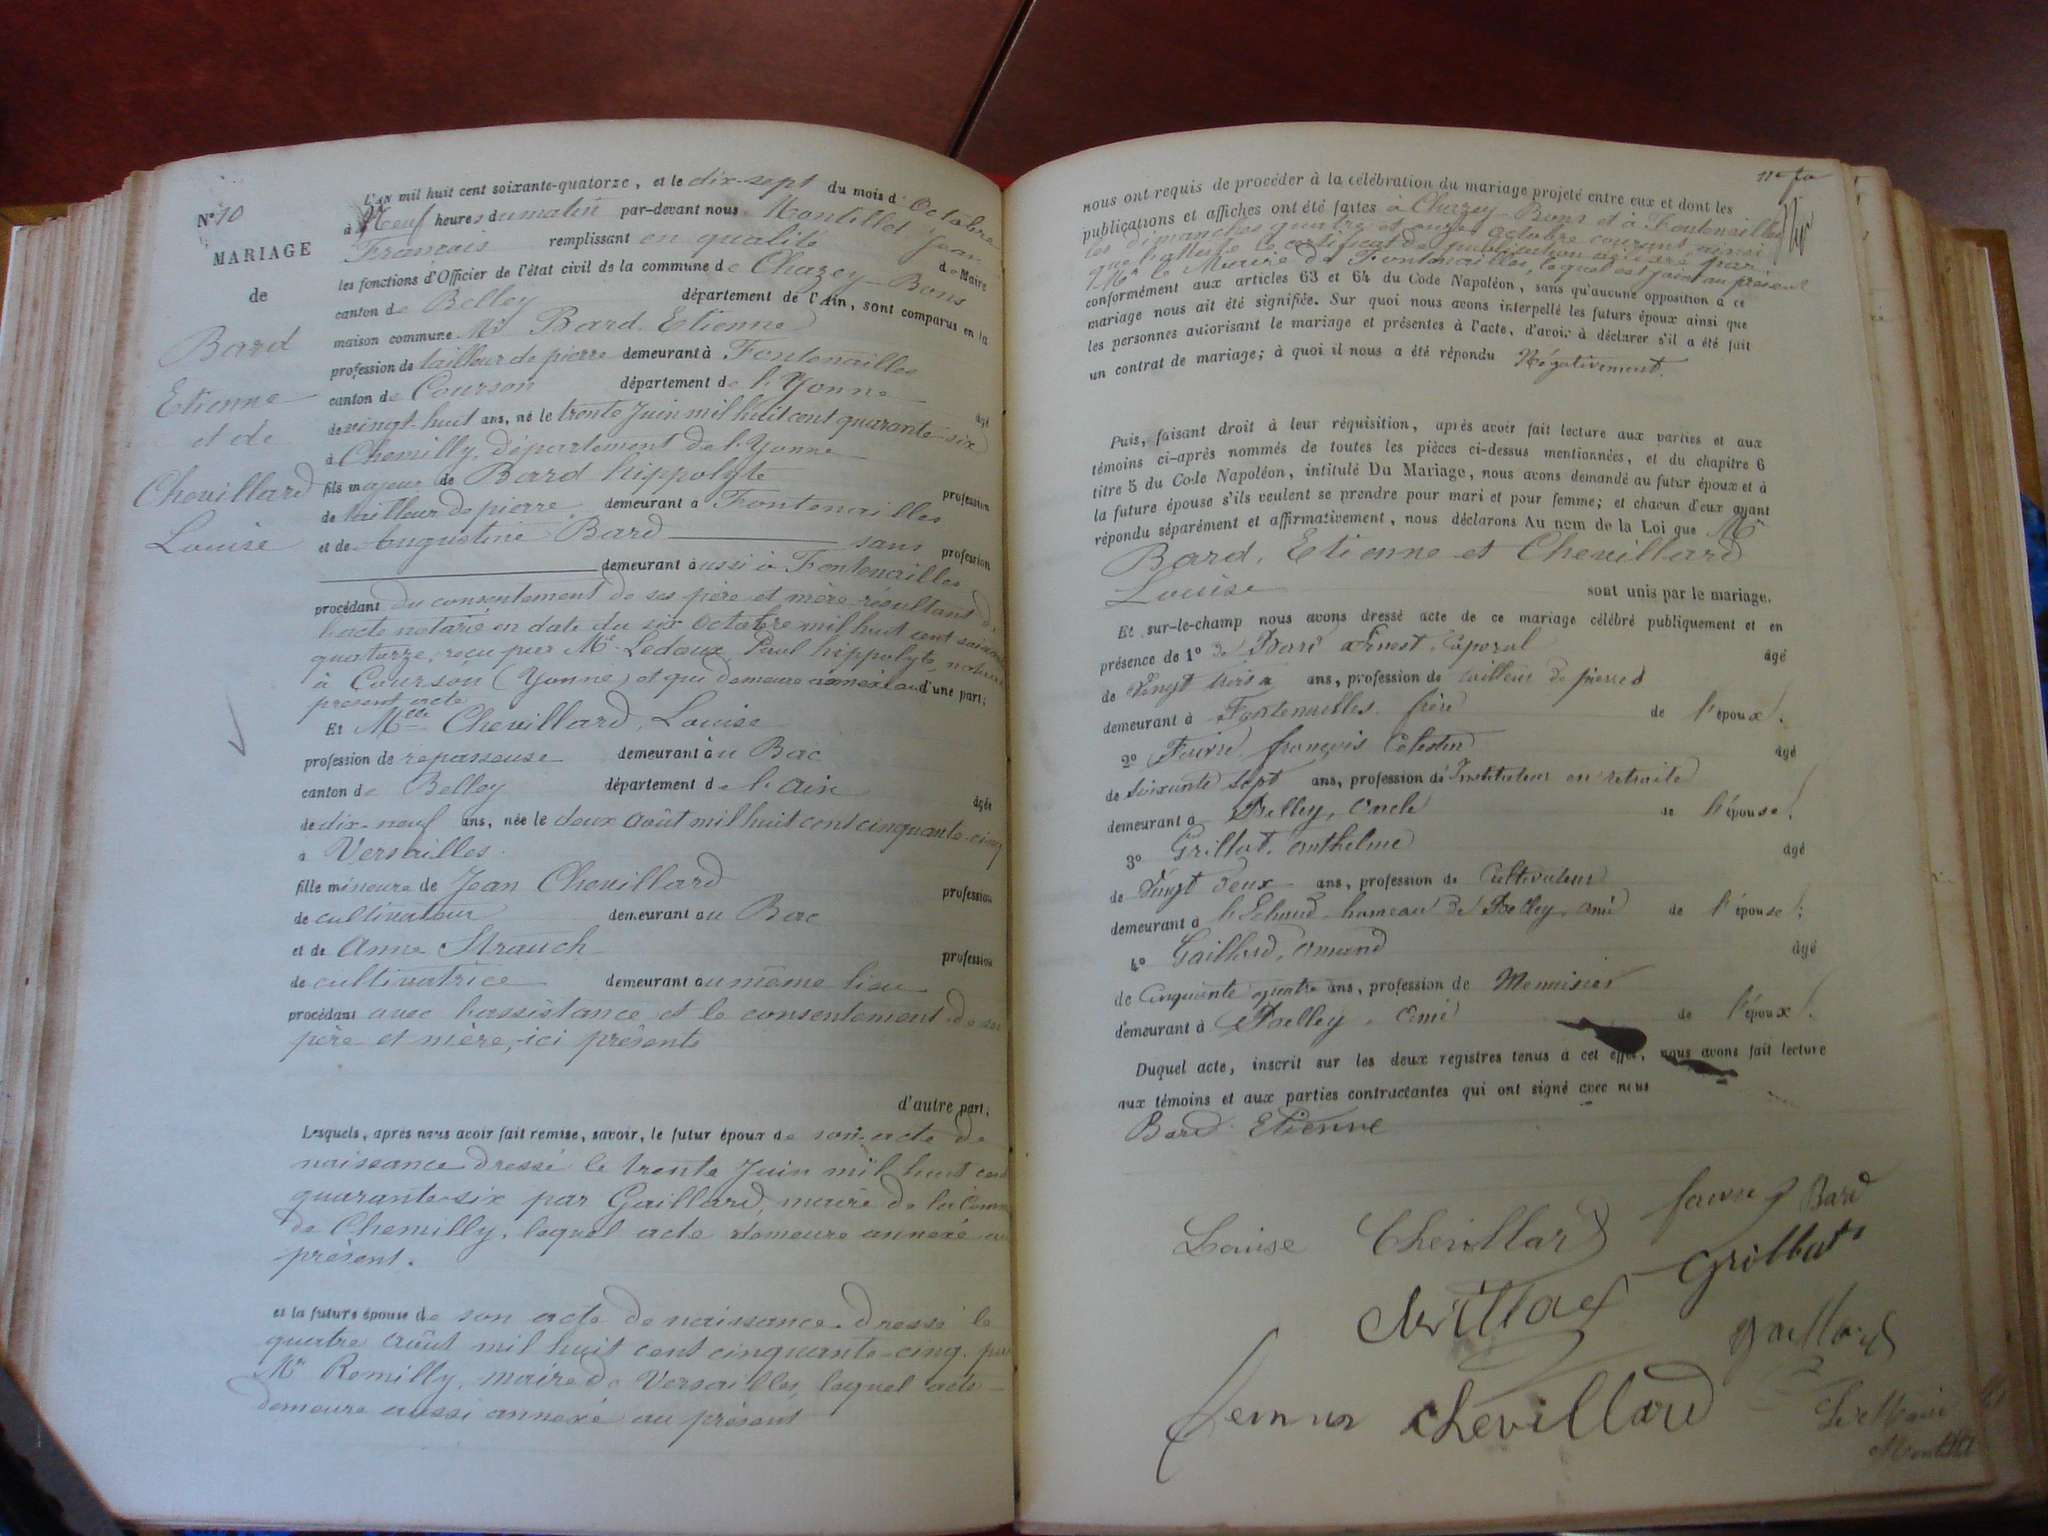 N° 10
MARIAGE
de
Bard
Etienne
et de
Chevillard
Louise
L'AN mil huit cent soixante-quatorze, et le dix-sept du mois d'Octobre
à Neuf heures du matin par-devant nous Montillet Jean
François remplissant en qualité de Maire
les fonctions d'Officier de l'état civil de la commune de Chazey-Bons
canton de Belley département de l'Ain, sont comparus en la
maison commune Mr Bard Etienne
profession de tailleur de pierre demeurant à Fontenailles
canton de Courson département de l'Yonne âgé
de vingt-huit ans, né le trente Juin mil huit cent quarante-six
à Chemilly, département de l'Yonne
fils majeur de Bard hippolyte profession
de tailleur de pierre demeurant à Fontenailles
et de Augustine Bard sans profession
demeurant aussi à Fontenailles
procédant du consentement de ses père et mère résultant d'
l'acte notarié en date du six Octobre mil huit cent soixante
quatorze, reçu par Me Ledoux Paul hippolyte, notaire
à Courson (Yonne) et qui demeure annexé au d'une part;
présent acte
Et Melle Chevillard Louise
profession de repasseuse demeurant au Bac
canton de Belley département de l'ain âgée
de dix-neuf ans, née le deux août mil huit cent cinquante-cinq
à Versailles
fille mineure de Jean Chevillard profession
de cultivateur demeurant au Bac
et de Anne Strauch profession
de cultivatrice demeurant au même lieu
procédant avec l'assistance et le consentement de ses
père et mère, ici présents
d'autre part;
Lesquels, après nous avoir fait remise, savoir, le futur époux de son acte de
naissance dressé le trente Juin mil huit cent
quarante-six par Gaillard, maire de la Comm
de Chemilly, lequel acte demeure annexé au
présent.
et la future épouse de son acte de naissance dressé le
quatre août mil huit cent cinquante-cinq par
Mr Remilly, maire de Versailles, lequel acte
demeure aussi annexé au présent
nous ont requis de procéder à la célébration du mariage projeté entre eux et dont les
publications et affiches ont été faites à Chazey-Bons et à Fontenailles
les dimanches quatre et onze Octobre courant ainsi
que l'atteste le certificat de publication délivré par
Mr le Maire de Fontenailles, lequel est joint au présent
conformément aux articles 63 et 64 du Code Napoléon, sans qu'aucune opposition à ce
mariage nous ait été signifiée. Sur quoi nous avons interpellé les futurs époux ainsi que
les personnes autorisant le mariage et présentes à l'acte, d'avoir à déclarer s'il a été fait
un contrat de mariage; à quoi il nous a été répondu Négativement.
Puis, faisant droit à leur réquisition, après avoir fait lecture aux parties et aux
témoins ci-après nommés de toutes les pièces ci-dessus mentionnées, et du chapitre 6
titre 5 du Code Napoléon, intitulé Du Mariage, nous avons demandé au futur époux et à
la future épouse s'ils veulent se prendre pour mari et pour femme; et chacun d'eux ayant
répondu séparément et affirmativement, nous déclarons Au nom de la Loi que Mr
Bard, Etienne et Chevillard
Louise sont unis par le mariage.
Et sur-le-champ nous avons dressé acte de ce mariage célébré publiquement et en
présence de 1° de Bard Ernest, Caporal âgé
de Vingt trois ans, profession de tailleur de pierres
demeurant à Fontenailles frère de l'époux;
2° François Célestin âgé
de soixante sept ans, profession de Instituteur en retraite
demeurant à Belley, oncle de l'épouse;
3° Grillat, anthelme âgé
de Vingt deux ans, profession de Cultivateur
demeurant à hameau de Belley, ami de l'épouse;
4° Gaillard, amand âgé
de Cinquante quatre ans, profession de Menuisier
demeurant à Belley, ami de l'époux;
Duquel acte, inscrit sur les deux registres tenus à cet effet, nous avons fait lecture
aux témoins et aux parties contractantes qui ont signé avec nous
Bard Etienne
Bard
Louise Chevillard
Grillat
gaillard
femme chevillard
Le Maire
Montillet